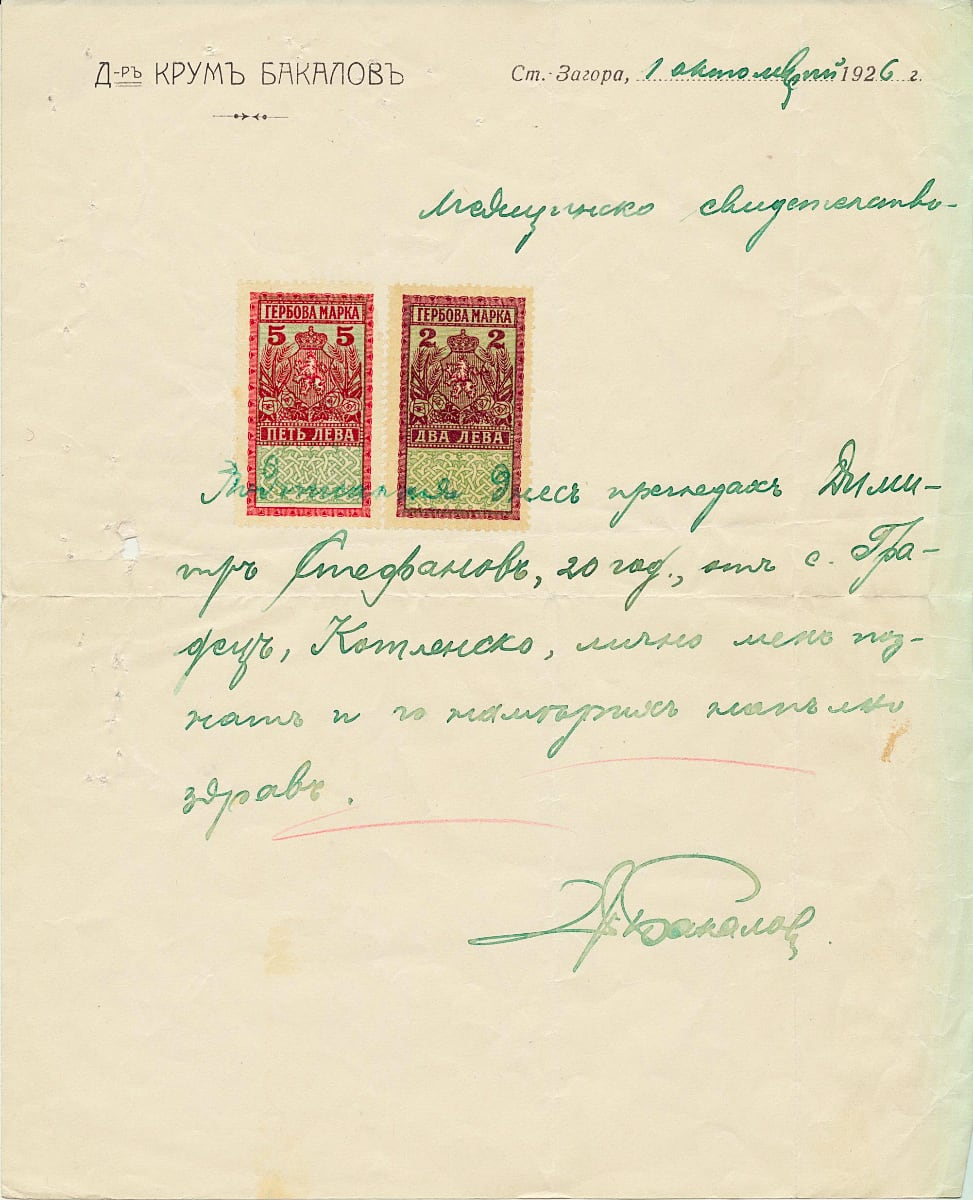 Д-ръ КРУМЪ БАКАЛОВЪ
Ст.-Загора, 1 октомврий 1926 г.
Медицинско свидетелство
ГЕРБОВА МАРКА
5 5
ПЕТЬ ЛЕВА
ГЕРБОВА МАРКА
2 2
ДВА ЛЕВА
Днесъ прегледахъ Дими-
тръ Стефановъ, 20 год., отъ с. Гра-
децъ, Котленско, лично менъ поз-
натъ и го намѣрихъ напълно
здравъ.
Д-ръ Бакаловъ